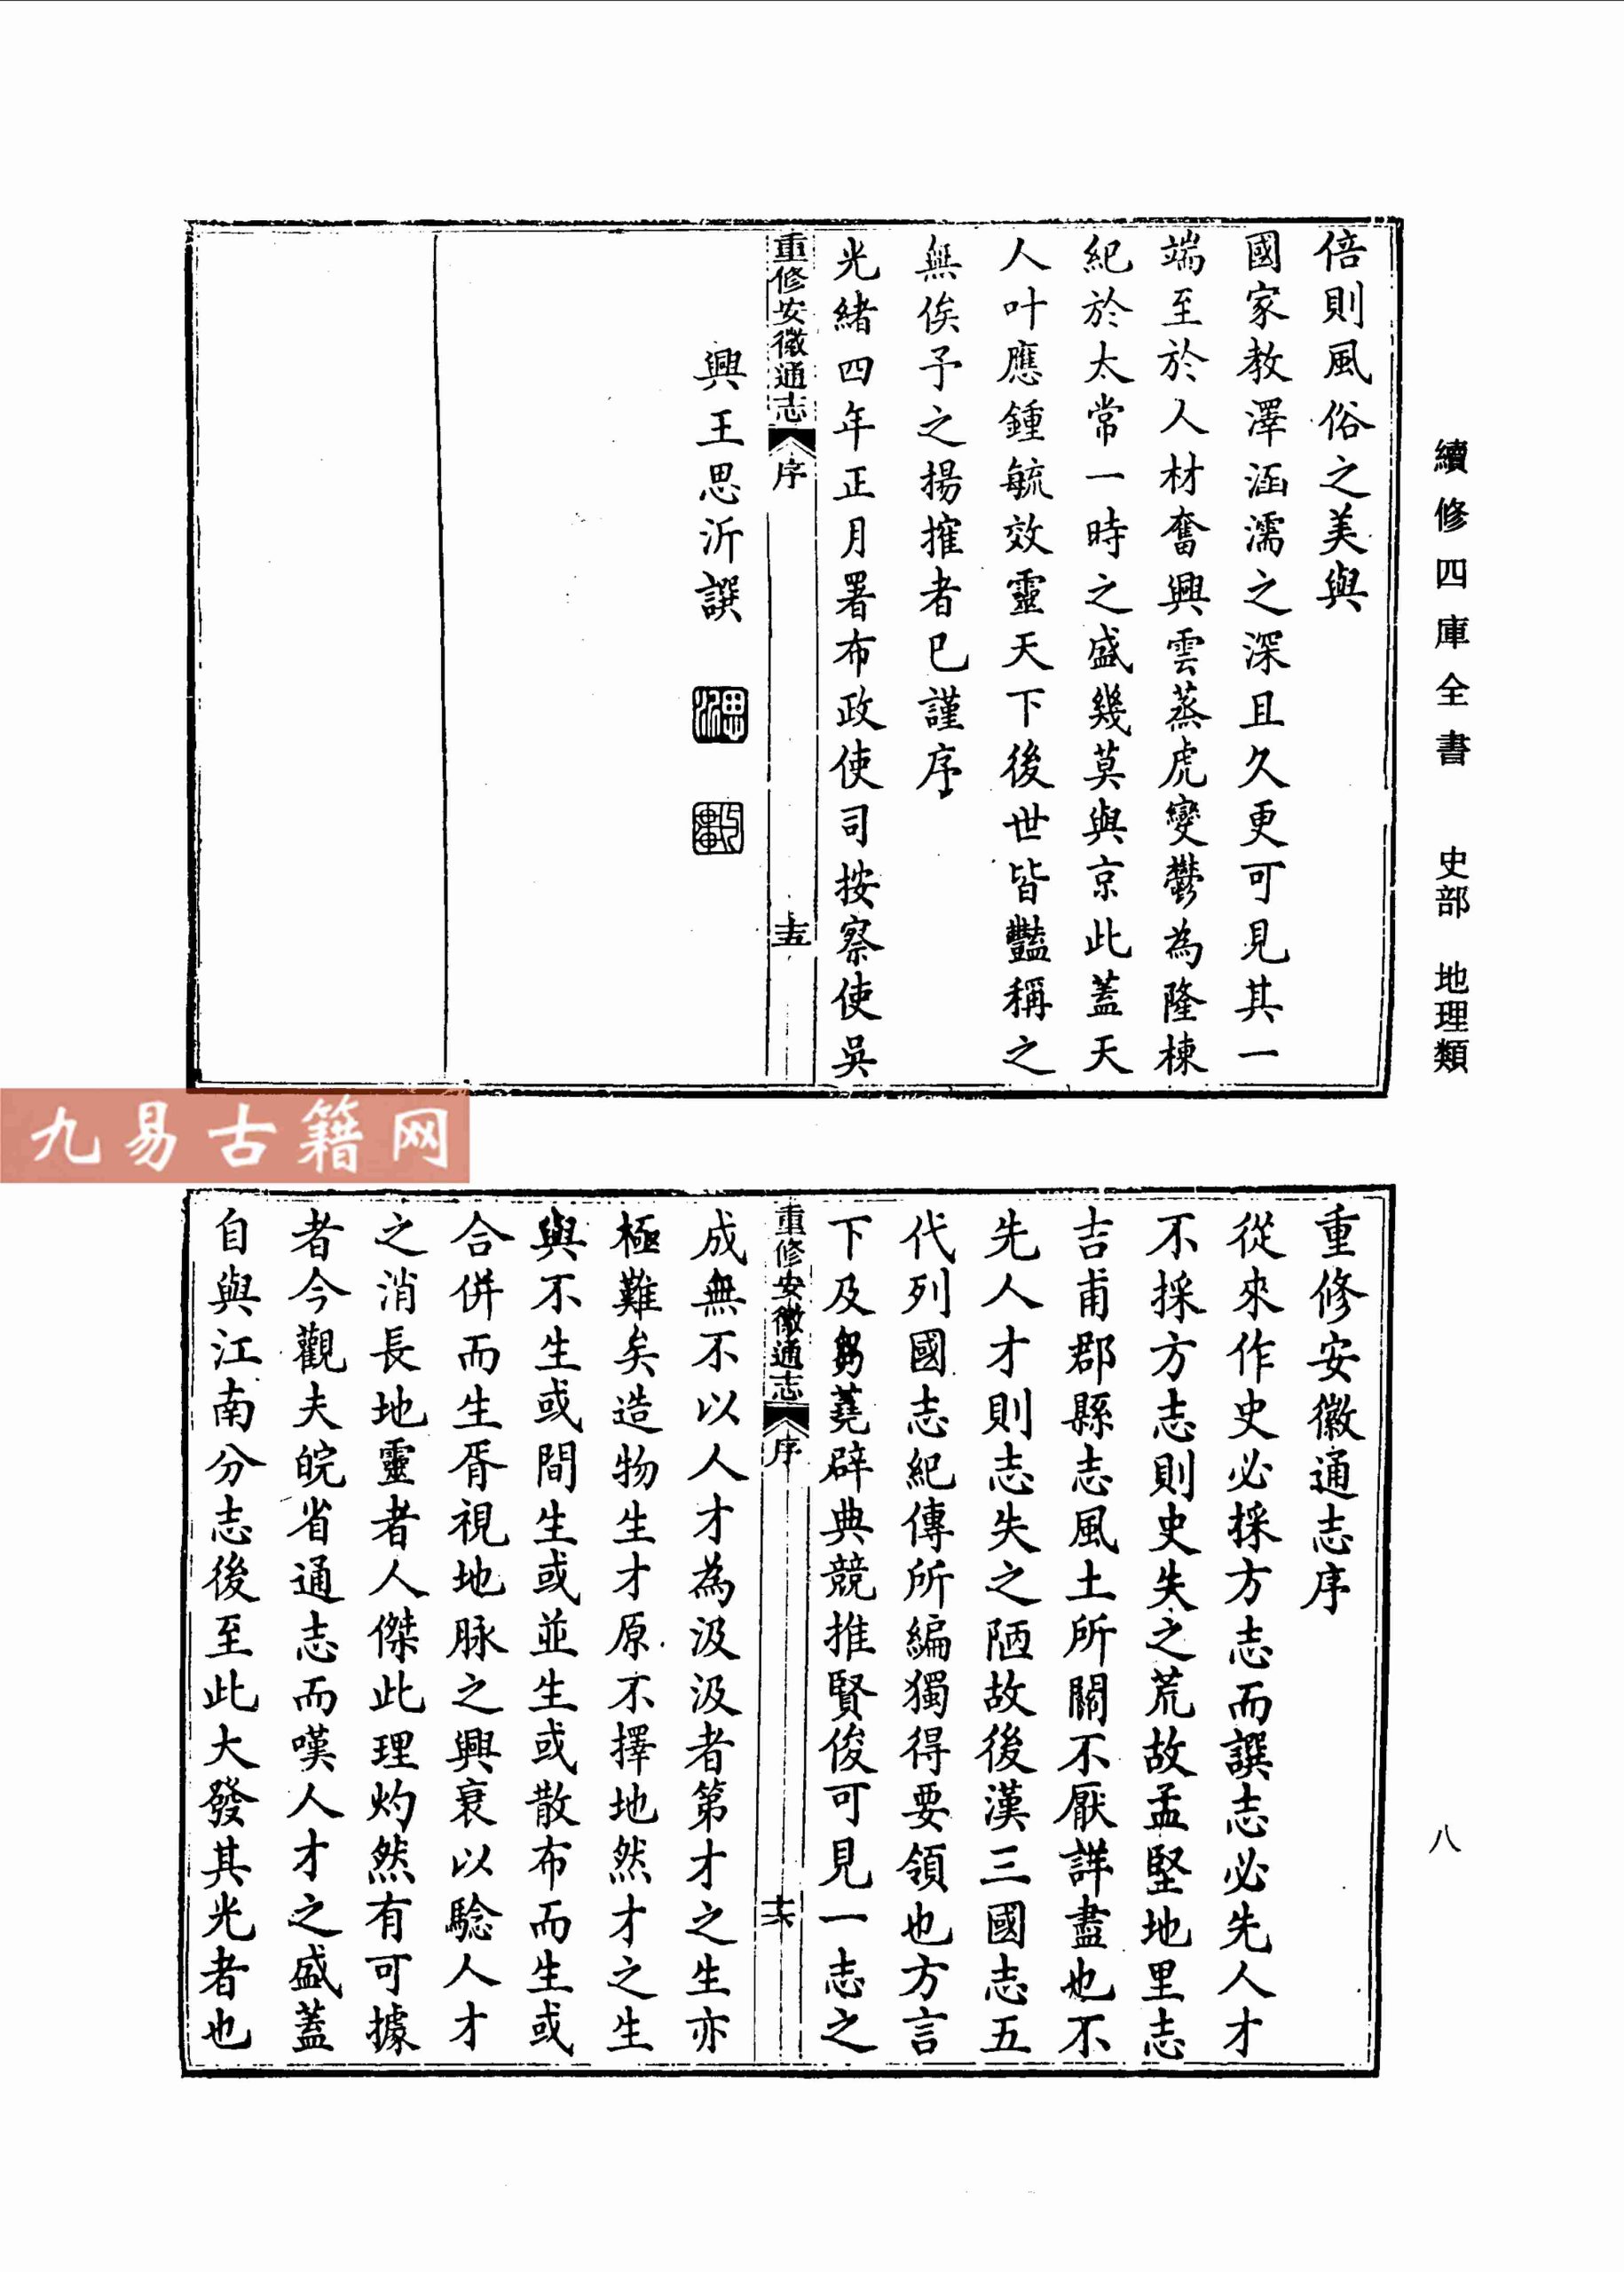 續修四庫全書　史部　地理類
倍則風俗之美與
國家教澤涵濡之深且久更可見其一
端至於人材奮興雲蒸虎變鬱為隆棟
紀於太常一時之盛幾莫與京此蓋天
人叶應鍾毓效靈天下後世皆豔稱之
無俟予之揚搉者已謹序
光緒四年正月署布政使司按察使吳
重修安徽通志　序　十五
興王思沂譔
思沂
九易古籍网
重修安徽通志序
從來作史必採方志而譔志必先人才
不採方志則史失之荒故孟堅地里志
吉甫郡縣志風土所關不厭詳盡也不
先人才則志失之陋故後漢三國志五
代列國志紀傳所編獨得要領也方言
下及芻蕘辟典競推賢俊可見一志之
重修安徽通志　序　十六
成無不以人才為汲汲者第才之生亦
極難矣造物生才原不擇地然才之生
與不生或間生或並生或散布而生或
合併而生胥視地脉之興衰以騐人才
之消長地靈者人傑此理灼然有可據
者今觀夫皖省通志而嘆人才之盛蓋
自與江南分志後至此大發其光者也
八